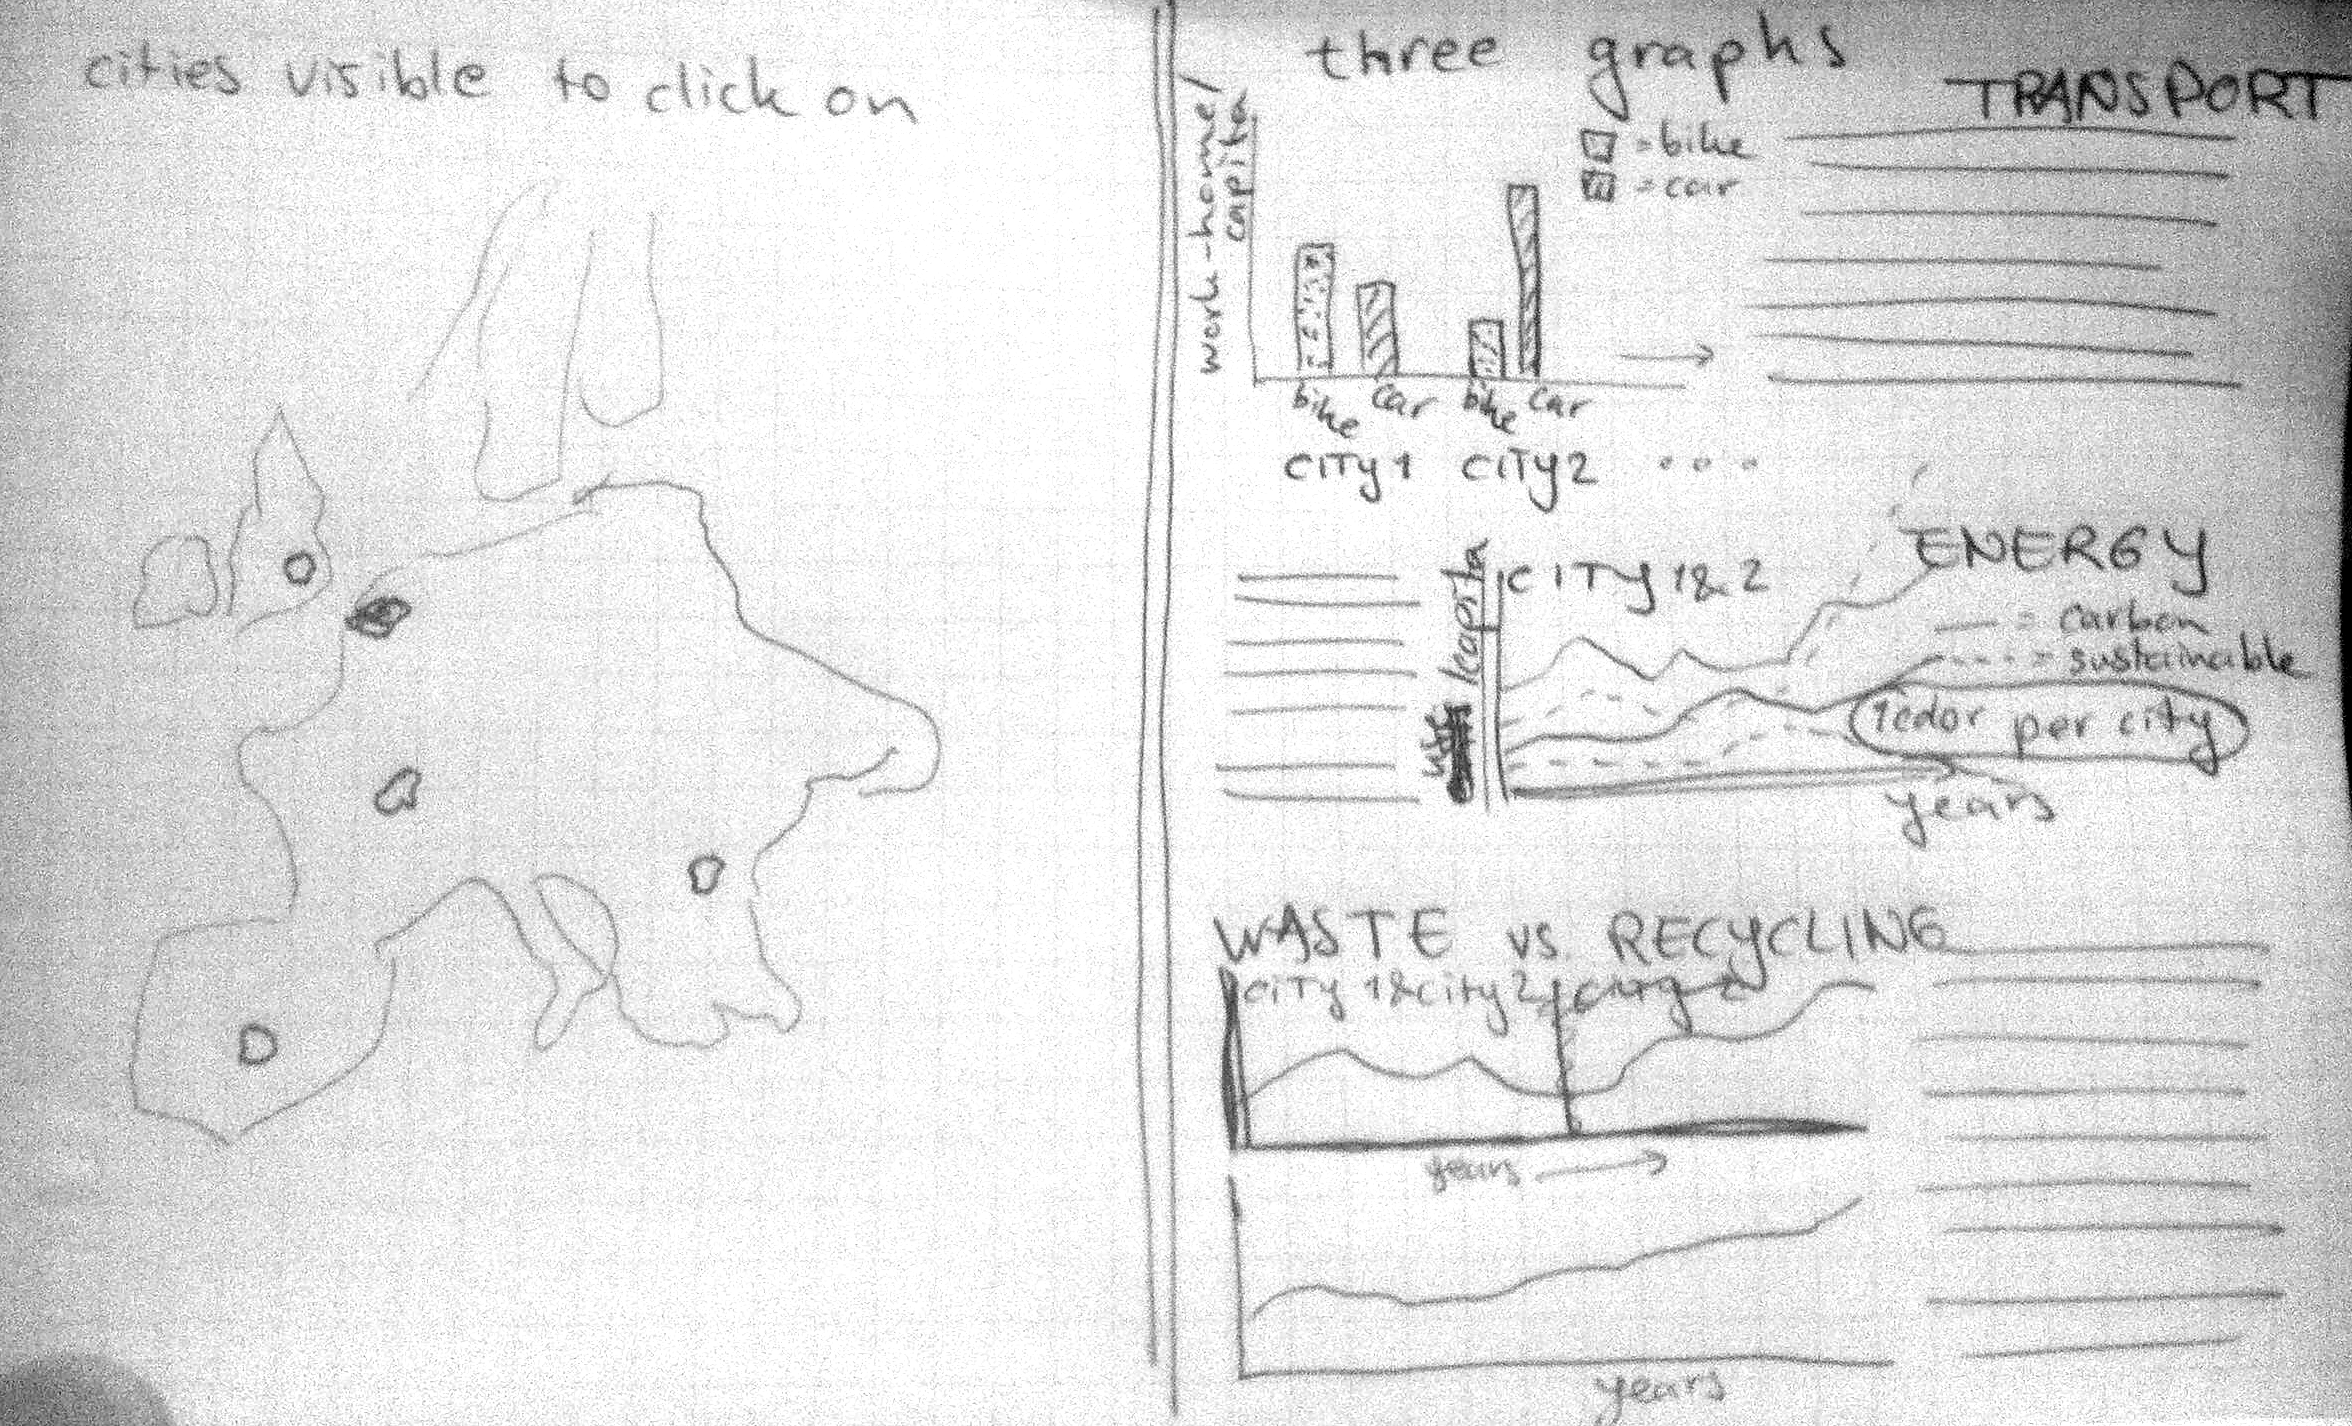 cities visible to click on
three graphs
TRANSPORT
work-home/
capita
= bike
= car
bike car bike car
CITY 1 CITY 2 ...
ENERGY
CITY 1 & 2
/capita
= carbon
= sustainable
1 color per city
years
WASTE vs. RECYCLING
city 1 & city 2
years
years